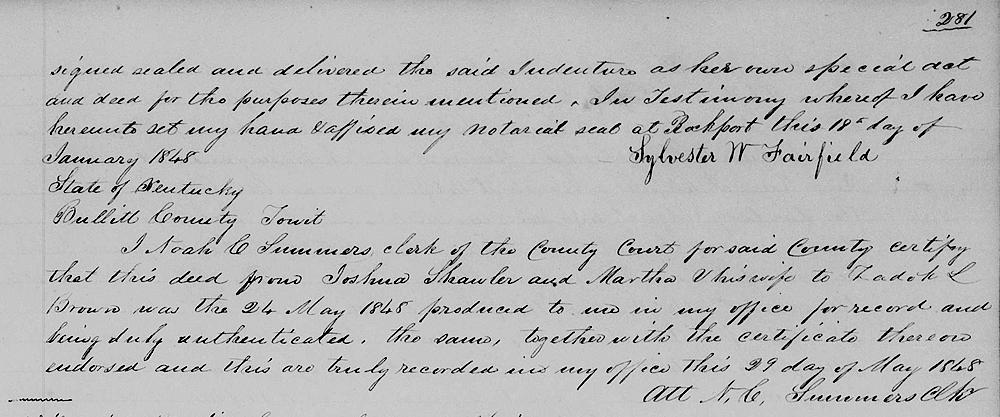 281
signed sealed and delivered the said Indenture as her own special act
and deed for the purposes therein mentioned. In Testimony whereof I have
hereunto set my hand & affixed my notarial seal at Rockport this 18th day of
January 1848 Sylvester W Fairfield
State of Kentucky
Bullitt County Towit
I Noah C Summers clerk of the County Court for said County certify
that this deed from Joshua Shawler and Martha V his wife to Zadok L
Brown was the 24 May 1848 produced to me in my office for record and
being duly authenticated, the same, together with the certificate thereon
endorsed and this are truly recorded in my office this 29 day of May 1848
Att N. C. Summers Clk